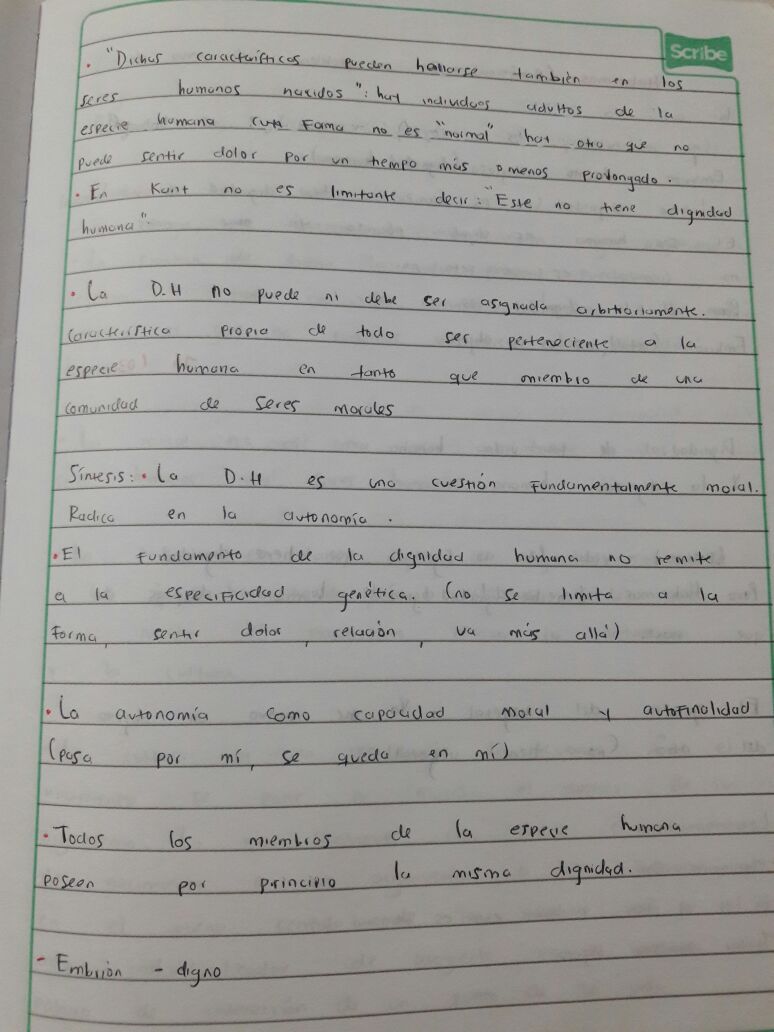 Scribe
• "Dichas características pueden hallarse también en los
seres humanos nacidos": hay individuos adultos de la
especie humana cuya Forma no es "normal" hay otro que no
puede sentir dolor por un tiempo más o menos prolongado.
• En Kant no es limitante decir: "Este no tiene dignidad
humana".
• La D.H no puede ni debe ser asignada arbitrariamente.
Característica propia de todo ser perteneciente a la
especie humana en tanto que miembro de una
comunidad de seres morales
Síntesis: • La D.H es una cuestión Fundamentalmente moral.
Radica en la autonomía.
• El Fundamento de la dignidad humana no remite
a la especificidad genética. (no se limita a la
Forma, sentir dolor, relación, va más allá)
• La autonomía como capacidad moral y autofinalidad
(pasa por mí, se queda en mí)
• Todos los miembros de la especie humana
poseen por principio la misma dignidad.
- Embrión - digno